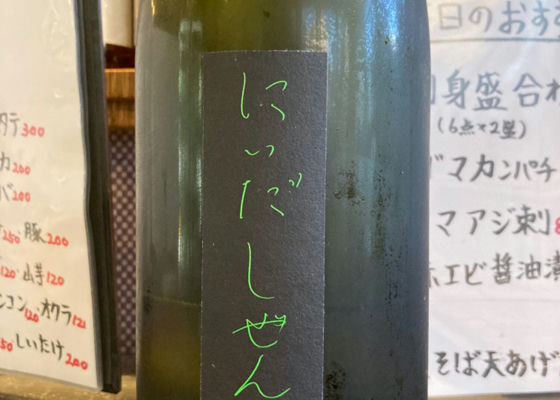 にいだしぜん
タテ300
カ200
バ200
250 豚200
120 山芋120
コン120 オクラ121
50 しいたけ200
日のおす
身盛合わ
(6点×2型)
マカンパチ
マアジ刺
ホエビ醤油漬
そば天あげ